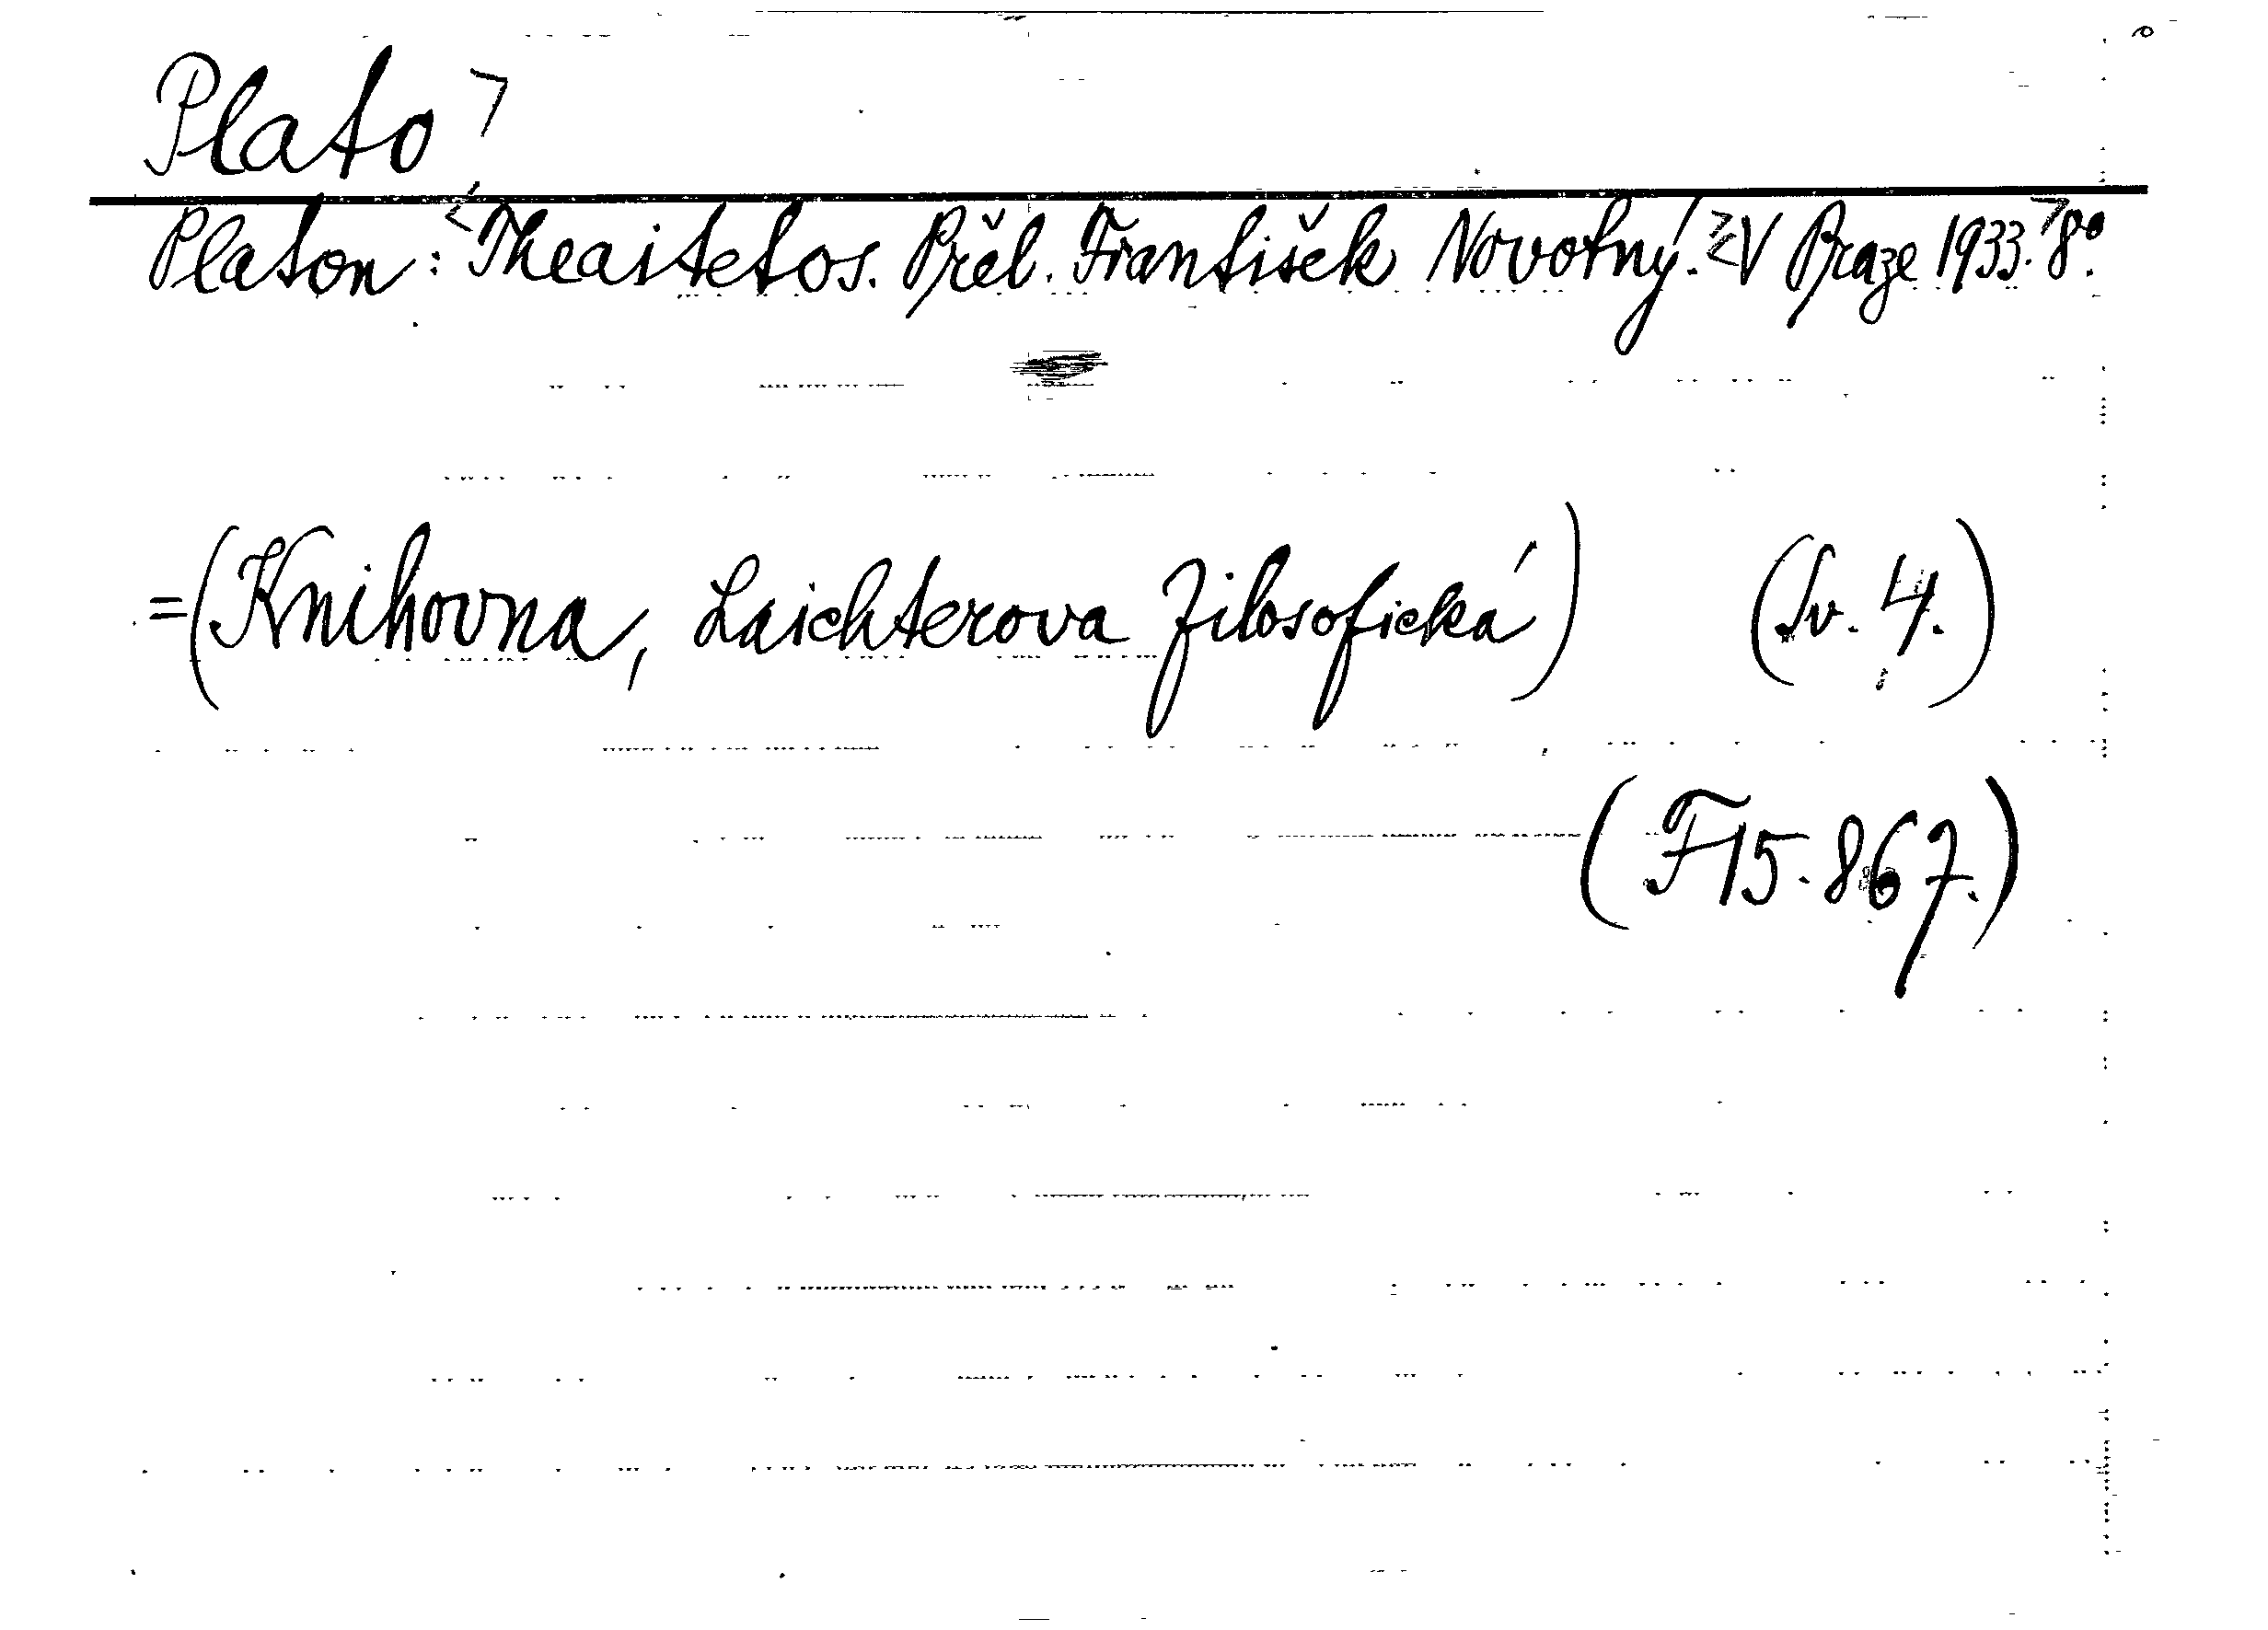 Plato
Platon: Theaitetos. Přel. František Novotný. V Praze 1933. 8°.
=(Knihovna, Laichterova filosofická) (Sv. 4.)
(F15.867.)